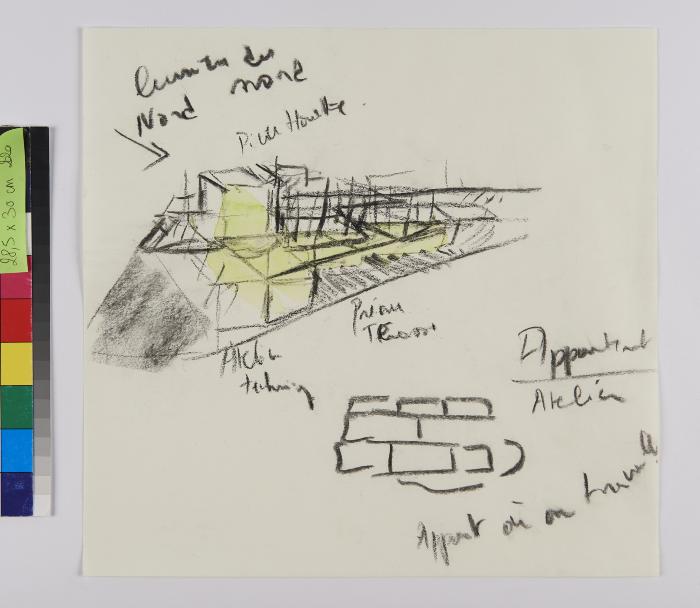 Lumière du
Nord nord
Préau
Terrasse
Atelier
technique
Appartement
Atelier
Appart où on travaille
28,5 x 30 cm